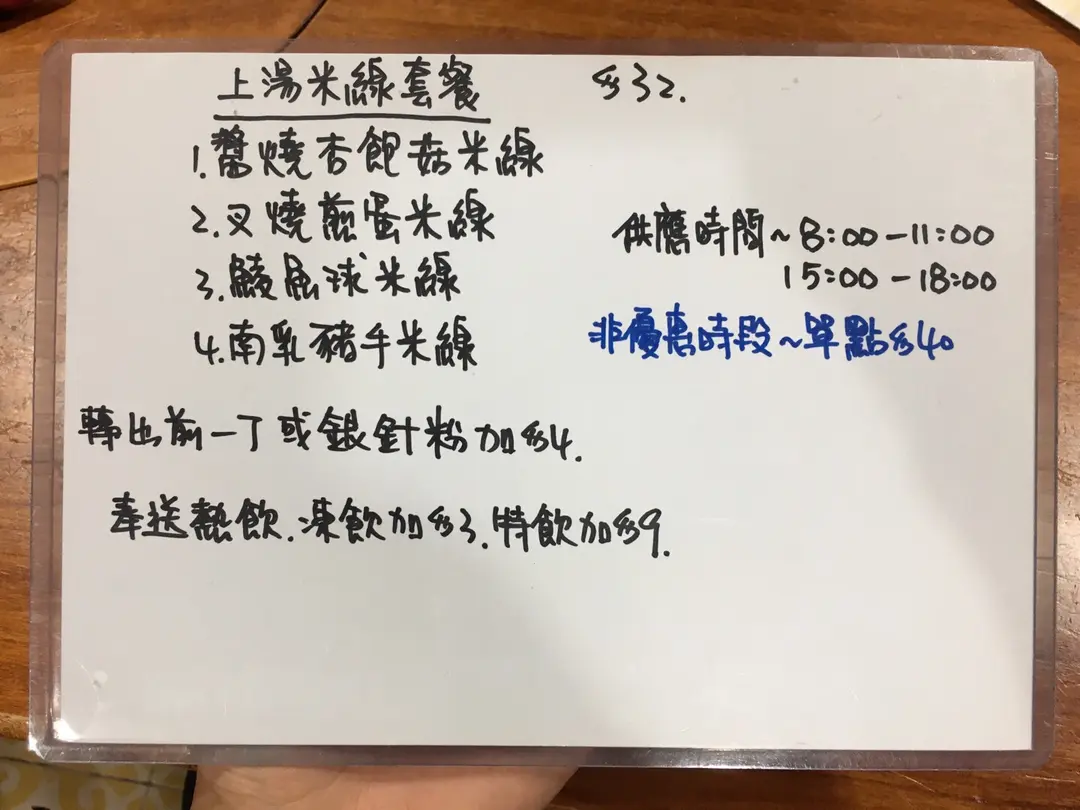 上湯米線套餐 $32.
1.醬燒杏飽菇米線
2.叉燒煎蛋米線
3.鯪魚球米線
4.南乳豬手米線
供應時間~8:00-11:00
15:00-18:00
非優惠時段~單點$40
轉出前一丁或銀針粉加$4.
奉送熱飲.凍飲加$3.特飲加$9.